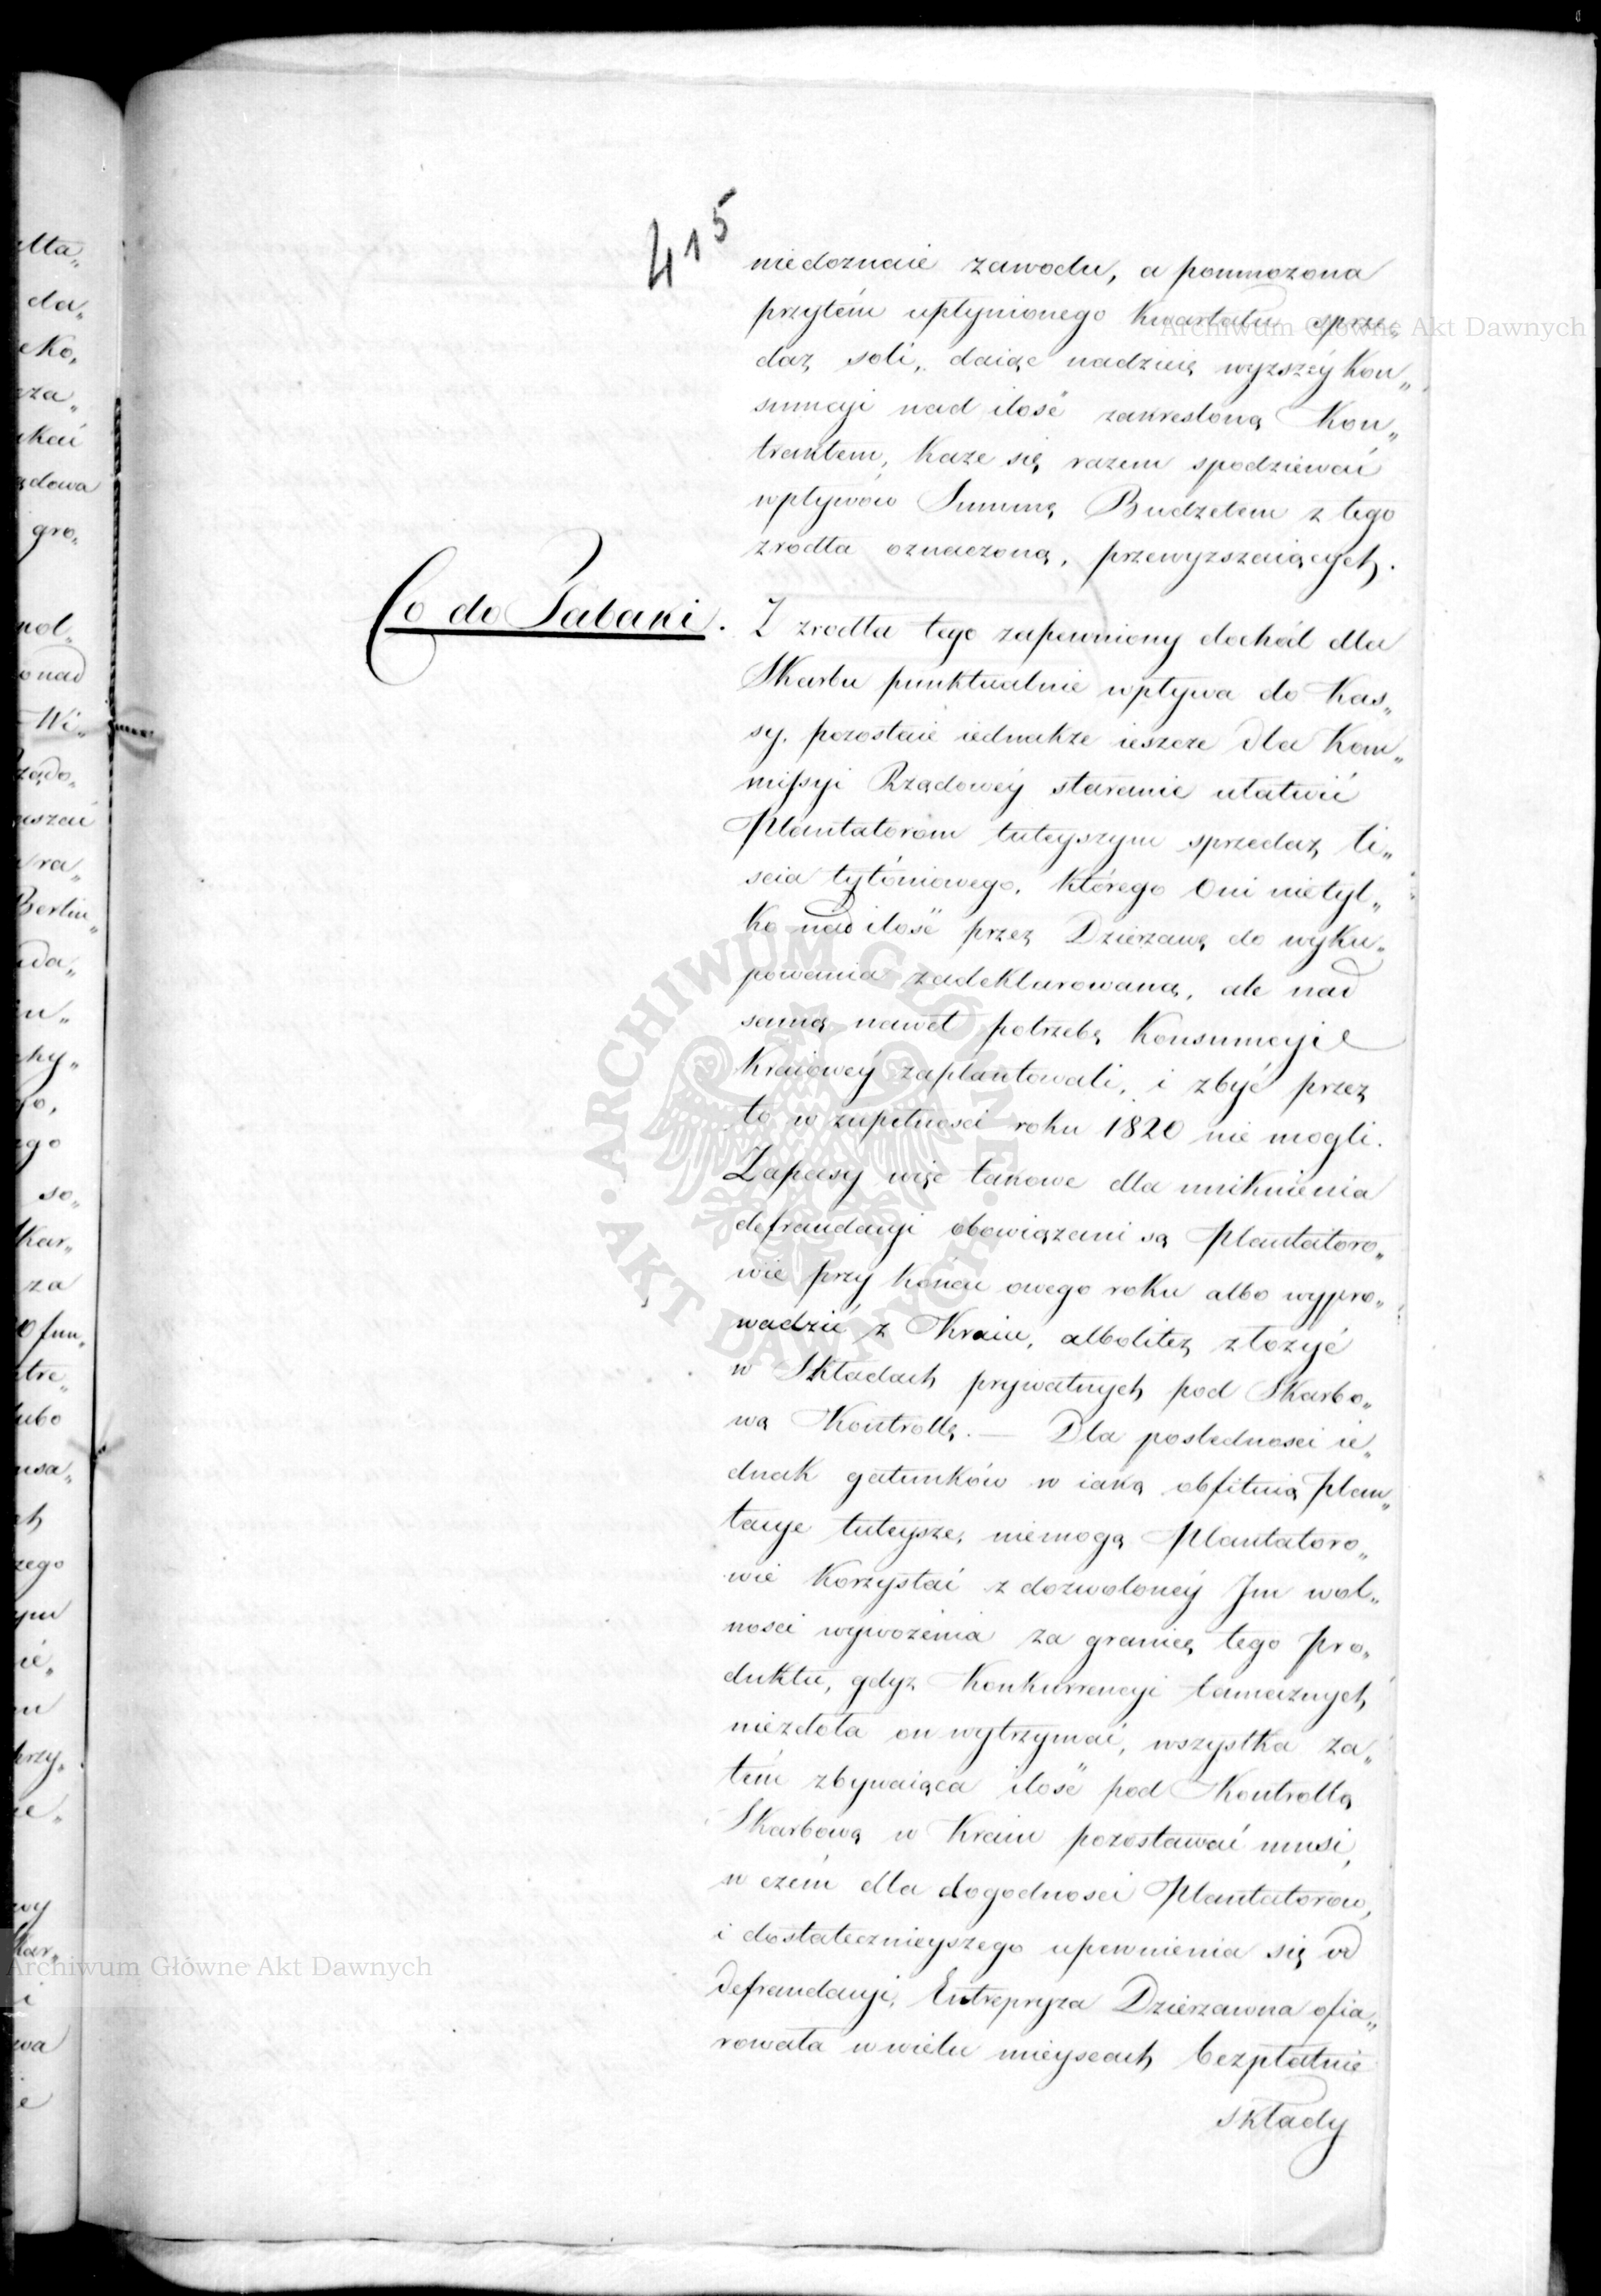 415
niedoznaie zawodu, a pomnożona
przytém upłynionego kwartału sprze„
daż soli, daiąc nadzieię wyższéy Kon„
sumcyi nad ilość zakresloną Kon„
traktem, Każe się razem spodziewać
wpływów Summę Budżetem z tego
zrodła oznaczoną, przewyższaiących.
Co do Tabaki.
Z zrodła tego zapewniony dochód dla
Skarbu punktualnie wpływa do Kas„
sy. pozostaie iednakże ieszcze dla Kom„
missyi Rządowéy staranie ułatwić
Plantatorom tuteyszym sprzedaż li„
scia tytóniowego, którego Oni nietyl„
ko nad ilość przez Dzierzawę do wyku„
powania zadeklarowaną, ale nad
samą nawet potrzebę Konsumcyi
Kraiowéy zaplantowali, i zbyć przez
to w zupełnosci roku 1820 nie mogli.
Zapasy więc takowe dla uniknienia
defraudacyi obowiązani są Plantatoro„
wie przy końcu owego roku albo wypro„
wadzić z Kraiu, albolitéż złożyć
w Składach prywatnych pod Skarbo„
wą Kontrollą. — Dla posledności ie„
dnak gatunków w iaką obfituią plan„
tacye tuteysze, niemogą Plantatoro„
wie Korzystać z dozwolonéy Jm wol„
ności wywożenia za granicę tego pro„
duktu, gdyż Konkurrencyi tamecznych
niezdoła on wytrzymać, wszystka za„
tém zbywaiąca ilość pod Kontrollą
Skarbową w Kraiu pozostawać musi,
w czém dla dogodnosci Plantatorów,
i dostatecznieyszego upewnienia się od
defraudacyi, Entrepryza Dzierzawna ofia„
rowała w wielu mieyscach bezpłatnie
składy
Archiwum Główne Akt Dawnych
Archiwum Główne Akt Dawnych
ARCHIWUM GŁÓWNE AKT DAWNYCH